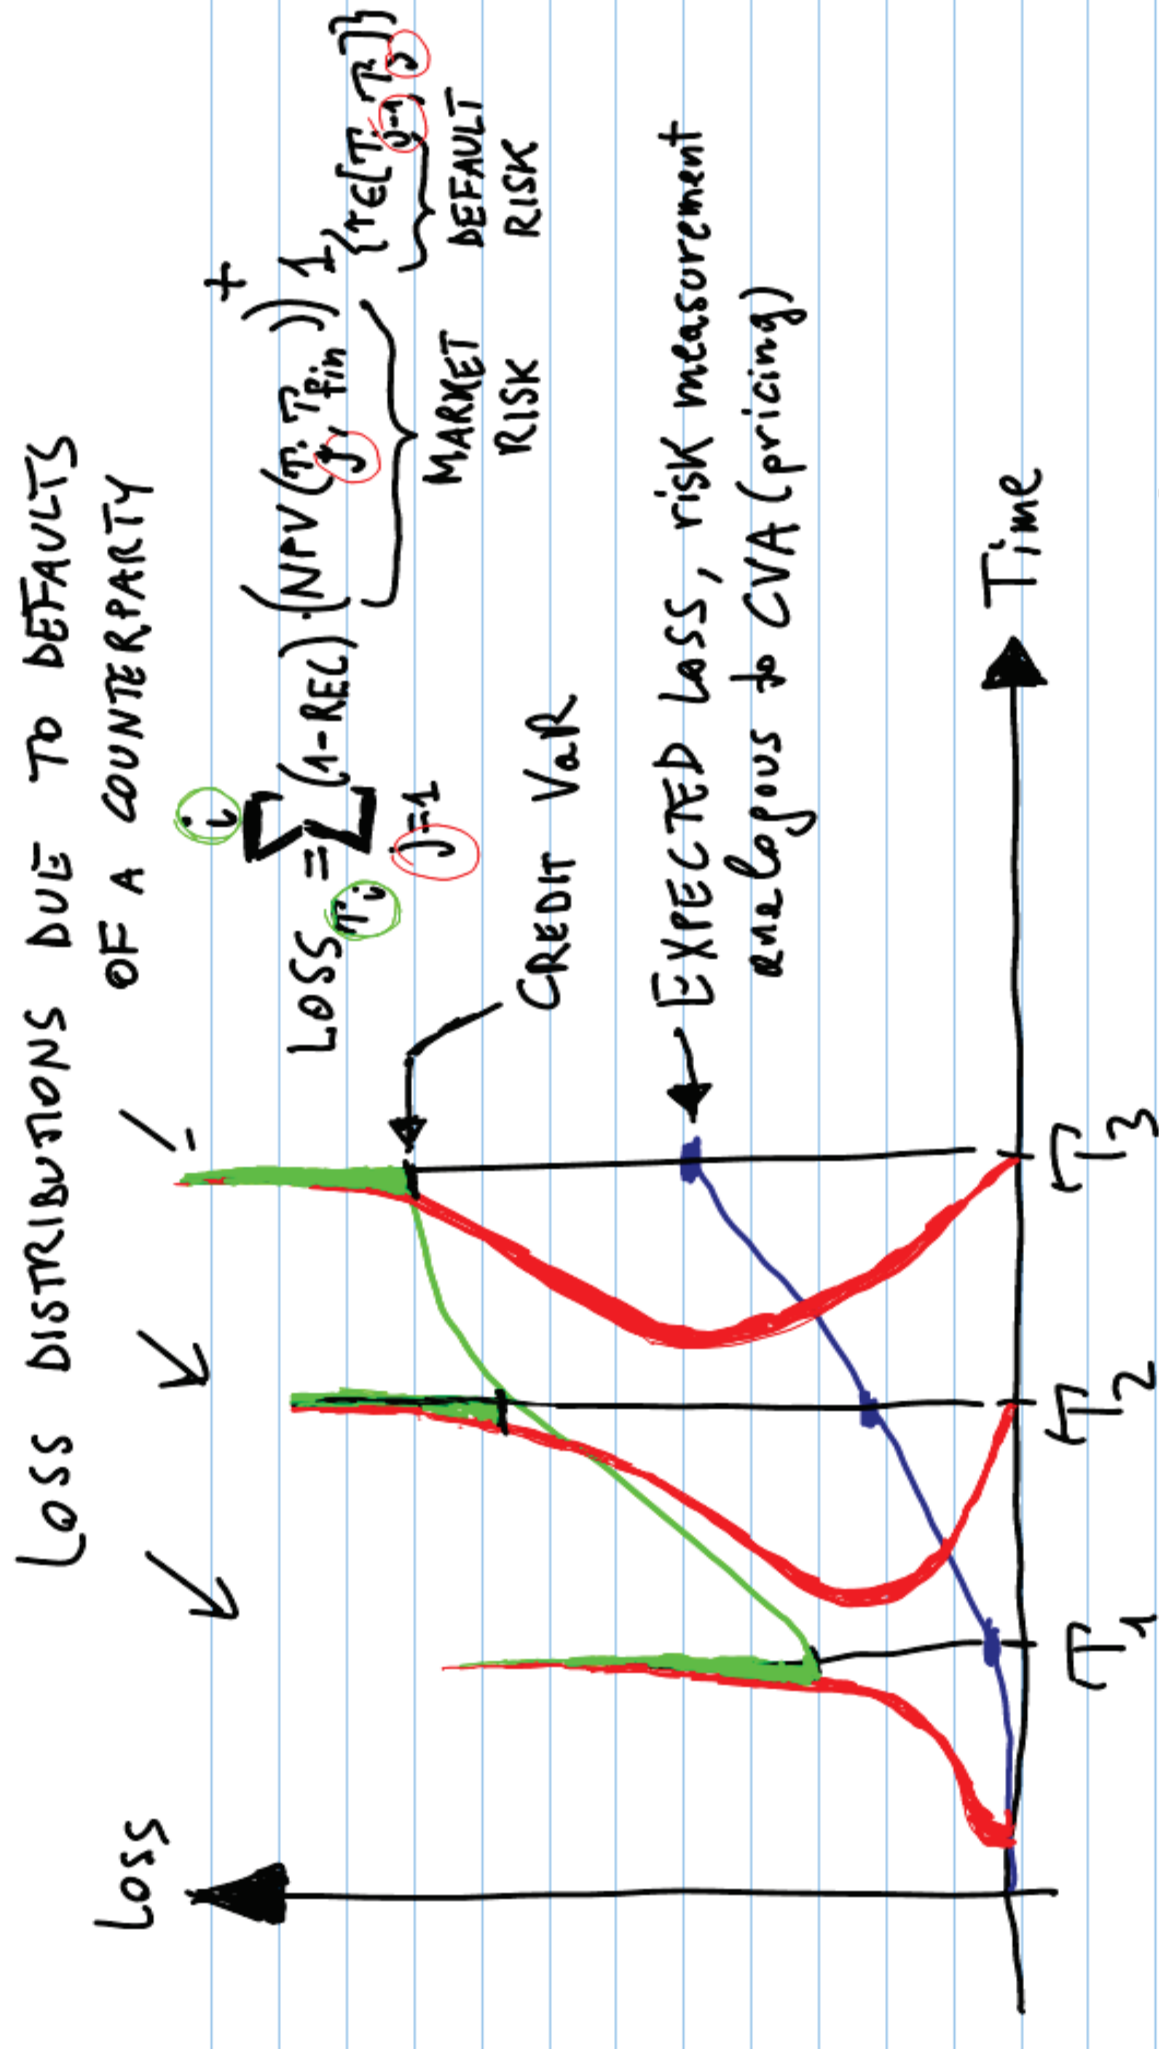 LOSS DISTRIBUTIONS DUE TO DEFAULTS
OF A COUNTERPARTY
LOSS_{T_i} = \sum_{j=1}^{i} (1-REC) \cdot (NPV(T_j, T_{fin}))^+ 1_{\{τ∈[T_{j-1}, T_j]\}}
MARKET
RISK
DEFAULT
RISK
CREDIT VaR
EXPECTED LOSS, risk measurement
analogous to CVA (pricing)
Loss
Time
T1
T2
T3